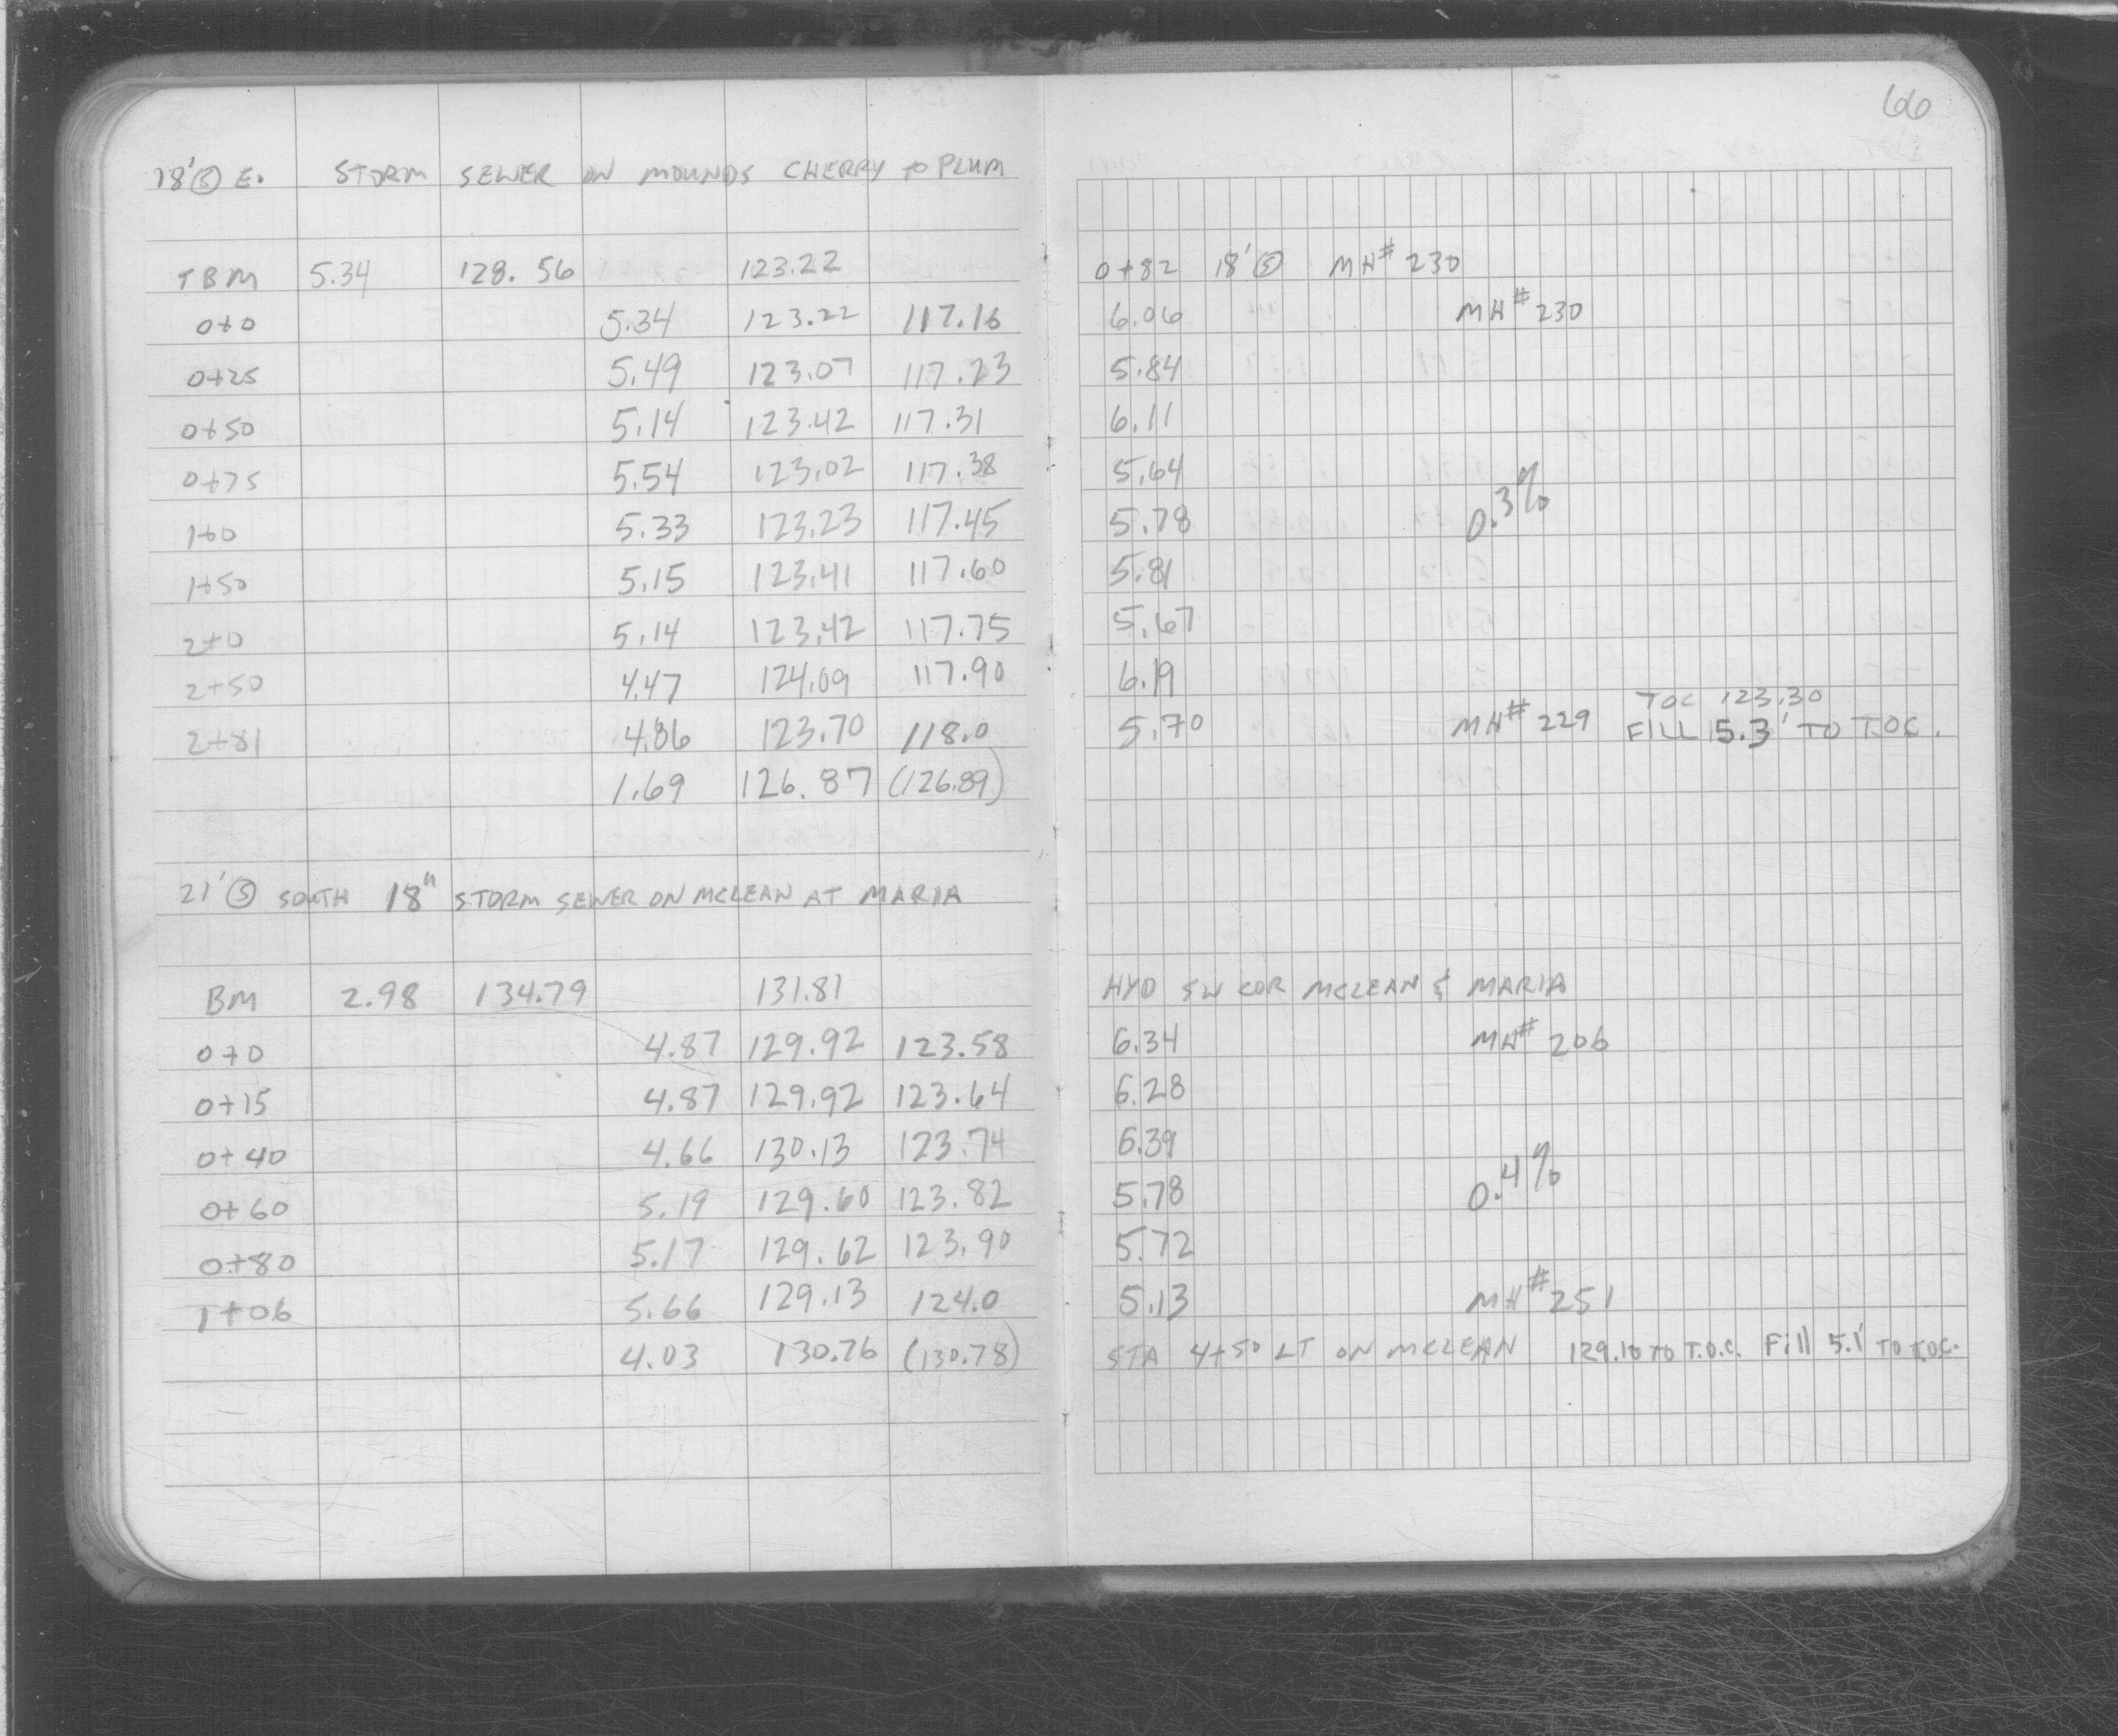 66
18' Ⓢ E. STORM SEWER ON MOUNDS CHERRY to PLUM
TBM 5.34 128.56 123.22 0+82 18' Ⓢ MH# 230
0+0 5.34 123.22 117.16 6.06 MH# 230
0+25 5.49 123.07 117.23 5.84
0+50 5.14 123.42 117.31 6.11
0+75 5.54 123.02 117.38 5.64
1+0 5.33 123.23 117.45 5.78 0.3%
1+50 5.15 123.41 117.60 5.81
2+0 5.14 123.42 117.75 5.67
2+50 4.47 124.09 117.90 6.19
TOC 123.30
2+81 4.86 123.70 118.0 5.70 MH# 229 FILL 5.3' TO T.O.C.
1.69 126.87 (126.89)
21' Ⓢ SOUTH 18" STORM SEWER ON MCLEAN AT MARIA
BM 2.98 134.79 131.81 HYD SW COR MCLEAN & MARIA
0+0 4.87 129.92 123.58 6.34 MH# 206
0+15 4.87 129.92 123.64 6.28
0+40 4.66 130.13 123.74 6.39
0+60 5.19 129.60 123.82 5.78 0.4%
0+80 5.17 129.62 123.90 5.72
1+06 5.66 129.13 124.0 5.13 MH# 251
4.03 130.76 (130.78) STA 4+50 LT ON MCLEAN 129.10 TO T.O.C. Fill 5.1' TO T.O.C.